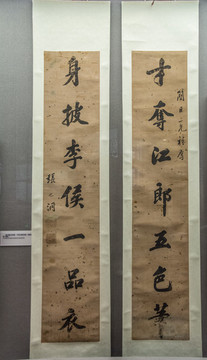 才奪江郎五色筆
身披李侯一品衣
張之洞